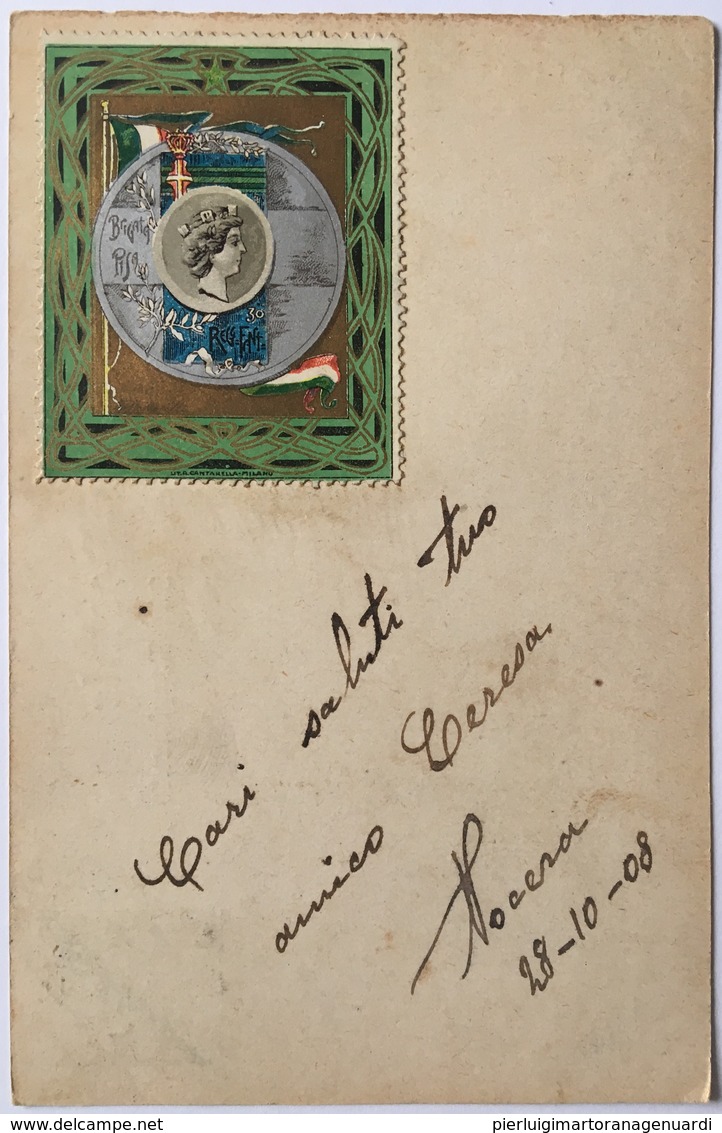 Brigata
Pisa
30
Regg. Fant.
LIT. R. CANTARELLA - MILANO
Cari saluti tuo
amico Ceresa.
Nocera
28-10-08
pierluigimartoranagenuardi